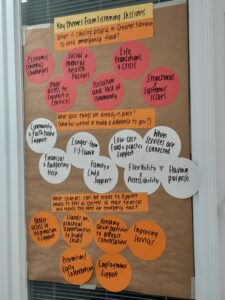 Key themes from listening sessions
What is causing people in Greater Norwich
to need emergency food?
Economic
(money)
challenges
Social +
mental
health
factors
Life
transitions
+ crisis
Poor
access to
support +
services
Isolation
and lack of
community
Structural
/
systemic
issues
What good things are already in place?
(What has worked or made a difference to you?)
Community +
faith based
support
Longer-term
1-2-1 work
Low-cost
food + practical
support
When
services are
connected
Financial
+ Budgeting
help
Family +
Child
Support
Flexibility
+
Accessibility
Having
purpose
What changes can be made to support
people to be in control of their finances
and reduce the need for emergency food?
Better
access to
information
+ support
Hands on
practical
opportunities
to learn
Breaking
down barriers
to difficult
conversations
Improving
services
Prevention/
Early
intervention
Employment
support